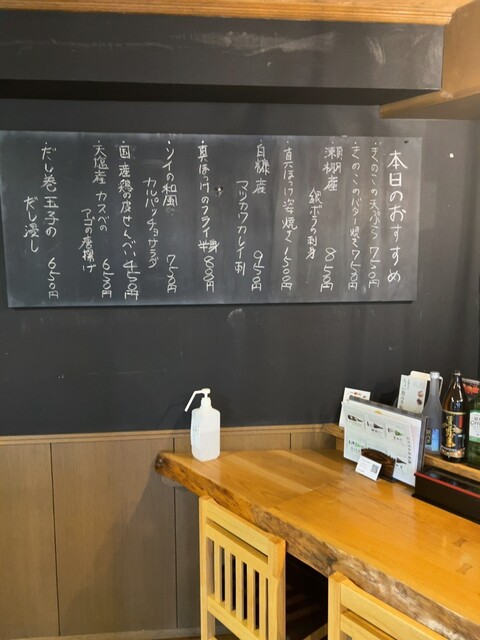 本日のおすすめ
・きのこの天ぷら 750円
・きのこのバター焼き 750円
・瀬棚産
銀ポラの刺身 850円
・真ほっけ姿焼き 1,500円
・白糠産
マツカワカレイ刺 950円
・真ほっけのフライ 半身 800円
・ソイの和風
カルパッチョサラダ 750円
・国産鶏の皮せんべい 450円
・天塩産 カスベの
アゴの唐揚げ 650円
・だし巻玉子の
だし浸し 650円